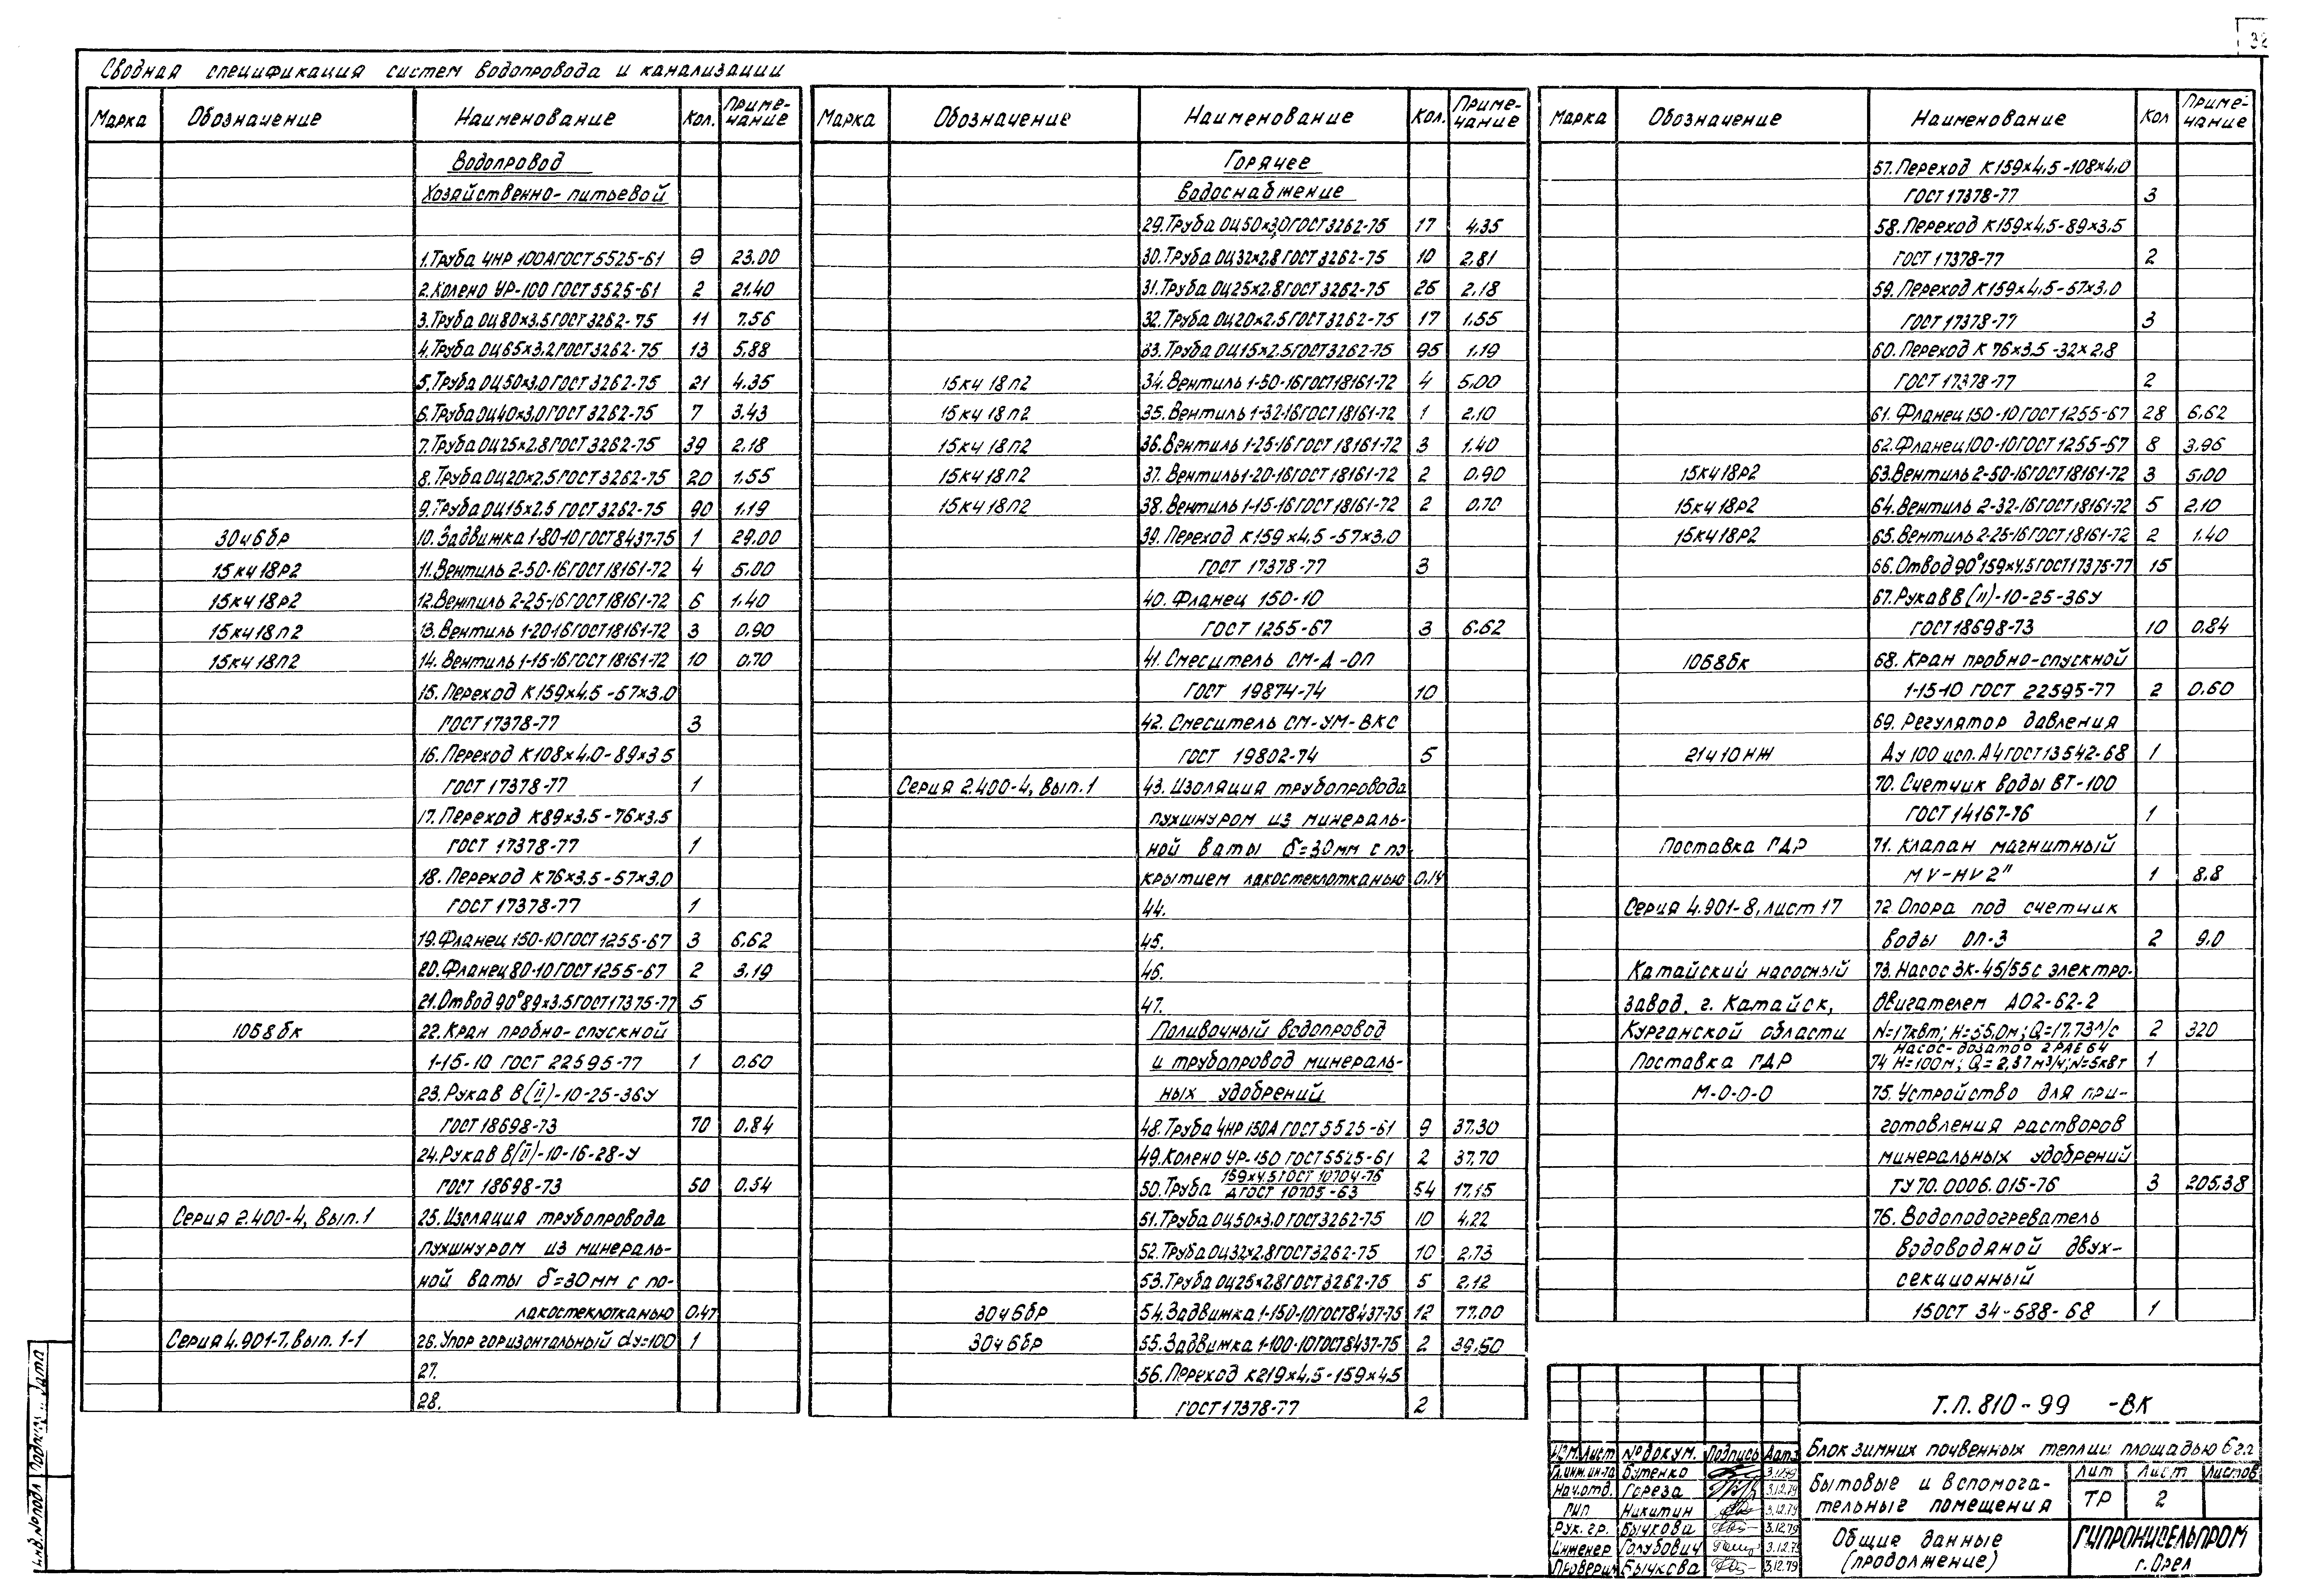 32
Сводная спецификация систем водопровода и канализации
Марка Обозначение Наименование Кол. Приме-чание
Водопровод
Хозяйственно-питьевой
1. Труба ЧНР 100А ГОСТ 5525-61 9 23.00
2. Колено УР-100 ГОСТ 5525-61 2 21.40
3. Труба ОЦ 80×3,5 ГОСТ 3262-75 11 7.56
4. Труба ОЦ 65×3,2 ГОСТ 3262-75 13 5,88
5. Труба ОЦ 50×3,0 ГОСТ 3262-75 21 4.35
6. Труба ОЦ 40×3,0 ГОСТ 3262-75 7 3.43
7. Труба ОЦ 25×2,8 ГОСТ 3262-75 39 2.18
8. Труба ОЦ 20×2,5 ГОСТ 3262-75 20 1.55
9. Труба ОЦ 15×2,5 ГОСТ 3262-75 90 1.19
30ч6бр 10. Задвижка 1-80-10 ГОСТ 8437-75 1 29.00
15кч18р2 11. Вентиль 2-50-16 ГОСТ 18161-72 4 5,00
15кч18р2 12. Вентиль 2-25-16 ГОСТ 18161-72 6 1.40
15кч18п2 13. Вентиль 1-20-16 ГОСТ 18161-72 3 0,90
15кч18п2 14. Вентиль 1-15-16 ГОСТ 18161-72 10 0.70
15. Переход К159×4,5-57×3,0
ГОСТ 17378-77 3
16. Переход К108×4,0-89×3,5
ГОСТ 17378-77 1
17. Переход К89×3,5-76×3,5
ГОСТ 17378-77 1
18. Переход К76×3,5-57×3,0
ГОСТ 17378-77 1
19. Фланец 150-10 ГОСТ 1255-67 3 6,62
20. Фланец 80-10 ГОСТ 1255-67 2 3,19
21. Отвод 90° 89×3,5 ГОСТ 17375-77 5
10б8бк 22. Кран пробно-спускной
1-15-10 ГОСТ 22595-77 1 0.60
23. Рукав В(II)-10-25-36У
ГОСТ 18698-73 70 0.84
24. Рукав В(II)-10-16-28-У
ГОСТ 18698-73 50 0.54
Серия 2.400-4, вып.1 25. Изоляция трубопровода
пухшнуром из минераль-
ной ваты δ=30мм с по-
лакостеклотканью 0.47
Серия 4.901-7, вып. 1-1 26. Упор горизонтальный dу=100 1
27.
28.
Марка Обозначение Наименование Кол. Приме-чание
Горячее
водоснабжение
29. Труба ОЦ 50×3,0 ГОСТ 3262-75 17 4.35
30. Труба ОЦ 32×2,8 ГОСТ 3262-75 10 2.81
31. Труба ОЦ 25×2,8 ГОСТ 3262-75 26 2.18
32. Труба ОЦ 20×2,5 ГОСТ 3262-75 17 1.55
33. Труба ОЦ 15×2,5 ГОСТ 3262-75 95 1.19
15кч18п2 34. Вентиль 1-50-16 ГОСТ 18161-72 4 5,00
15кч18п2 35. Вентиль 1-32-16 ГОСТ 18161-72 1 2.10
15кч18п2 36. Вентиль 1-25-16 ГОСТ 18161-72 3 1.40
15кч18п2 37. Вентиль 1-20-16 ГОСТ 18161-72 2 0,90
15кч18п2 38. Вентиль 1-15-16 ГОСТ 18161-72 2 0.70
39. Переход К159×4,5-57×3,0
ГОСТ 17378-77 3
40. Фланец 150-10
ГОСТ 1255-67 3 6.62
41. Смеситель СМ-Д-ОП
ГОСТ 19874-74 10
42. Смеситель СМ-УМ-ВКС
ГОСТ 19802-74 5
Серия 2.400-4, вып.1 43. Изоляция трубопровода
пухшнуром из минераль-
ной ваты δ=30мм с по-
крытием лакостеклотканью 0.14
44.
45.
46.
47.
Поливочный водопровод
и трубопровод минераль-
ных удобрений
48. Труба ЧНР 150А ГОСТ 5525-61 9 37.30
49. Колено УР-150 ГОСТ 5525-61 2 37.70
50. Труба 159×4,5 ГОСТ 10704-76 / Д ГОСТ 10705-63 54 17,15
51. Труба ОЦ 50×3,0 ГОСТ 3262-75 10 4.22
52. Труба ОЦ 32×2,8 ГОСТ 3262-75 10 2.73
53. Труба ОЦ 25×2,8 ГОСТ 3262-75 5 2.12
30ч6бр 54. Задвижка 1-150-10 ГОСТ 8437-75 12 77.00
30ч6бр 55. Задвижка 1-100-10 ГОСТ 8437-75 2 39.50
56. Переход К219×4,5-159×4,5
ГОСТ 17378-77 2
Марка Обозначение Наименование Кол Приме-чание
57. Переход К159×4,5-108×4,0
ГОСТ 17378-77 3
58. Переход К159×4,5-89×3,5
ГОСТ 17378-77 2
59. Переход К159×4,5-57×3,0
ГОСТ 17378-77 3
60. Переход К 76×3,5-32×2,8
ГОСТ 17378-77 2
61. Фланец 150-10 ГОСТ 1255-67 28 6,62
62. Фланец 100-10 ГОСТ 1255-67 8 3.96
15кч18р2 63. Вентиль 2-50-16 ГОСТ 18161-72 3 5,00
15кч18р2 64. Вентиль 2-32-16 ГОСТ 18161-72 5 2.10
15кч18р2 65. Вентиль 2-25-16 ГОСТ 18161-72 2 1.40
66. Отвод 90° 159×4,5 ГОСТ 17375-77 15
67. Рукав В(II)-10-25-36У
ГОСТ 18698-73 10 0.84
10б8бк 68. Кран пробно-спускной
1-15-10 ГОСТ 22595-77 2 0.60
69. Регулятор давления
21ч10нж Ду 100 исп. А4 ГОСТ 13542-68 1
70. Счетчик воды ВТ-100
ГОСТ 14167-76 1
Поставка ГДР 71. Клапан магнитный
MV-HV 2" 1 8.8
Серия 4.901-8, лист 17 72. Опора под счетчик
воды ОП-3 2 9.0
Катайский насосный 73. Насос 3К-45/55 с электро-
завод, г. Катайск, двигателем АО2-62-2
Курганской области N=17квт; Н=55,0м; Q=17.73 л/с 2 320
Насос-дозатор 2РАЕ64
Поставка ГДР 74 Н=100м; Q=2,37 м3/ч; N=5кВт 1
М-0-0-0 75. Устройство для при-
готовления растворов
минеральных удобрений
ТУ 70.0006.015-76 3 205.38
76. Водоподогреватель
водоводяной двух-
секционный
15 ОСТ 34-588-68 1
Т.П. 810-99 -ВК
Блок зимних почвенных теплиц площадью 6 га
Изм. Лист № докум. Подпись Дата
Гл. инж. ин-та Бутенко 3.12.79
Нач. отд. Гореза 3.12.79
ГИП Никитин 3.12.79
Рук. гр. Бычкова 3.12.79
Инженер Голубович 3.12.79
Проверил Бычкова 3.12.79
Бытовые и вспомога-
тельные помещения
Лит Лист Листов
ТР 2
Общие данные
(продолжение)
ГИПРОНИСЕЛЬПРОМ
г. Орел
Инв. № подл Подпись и дата